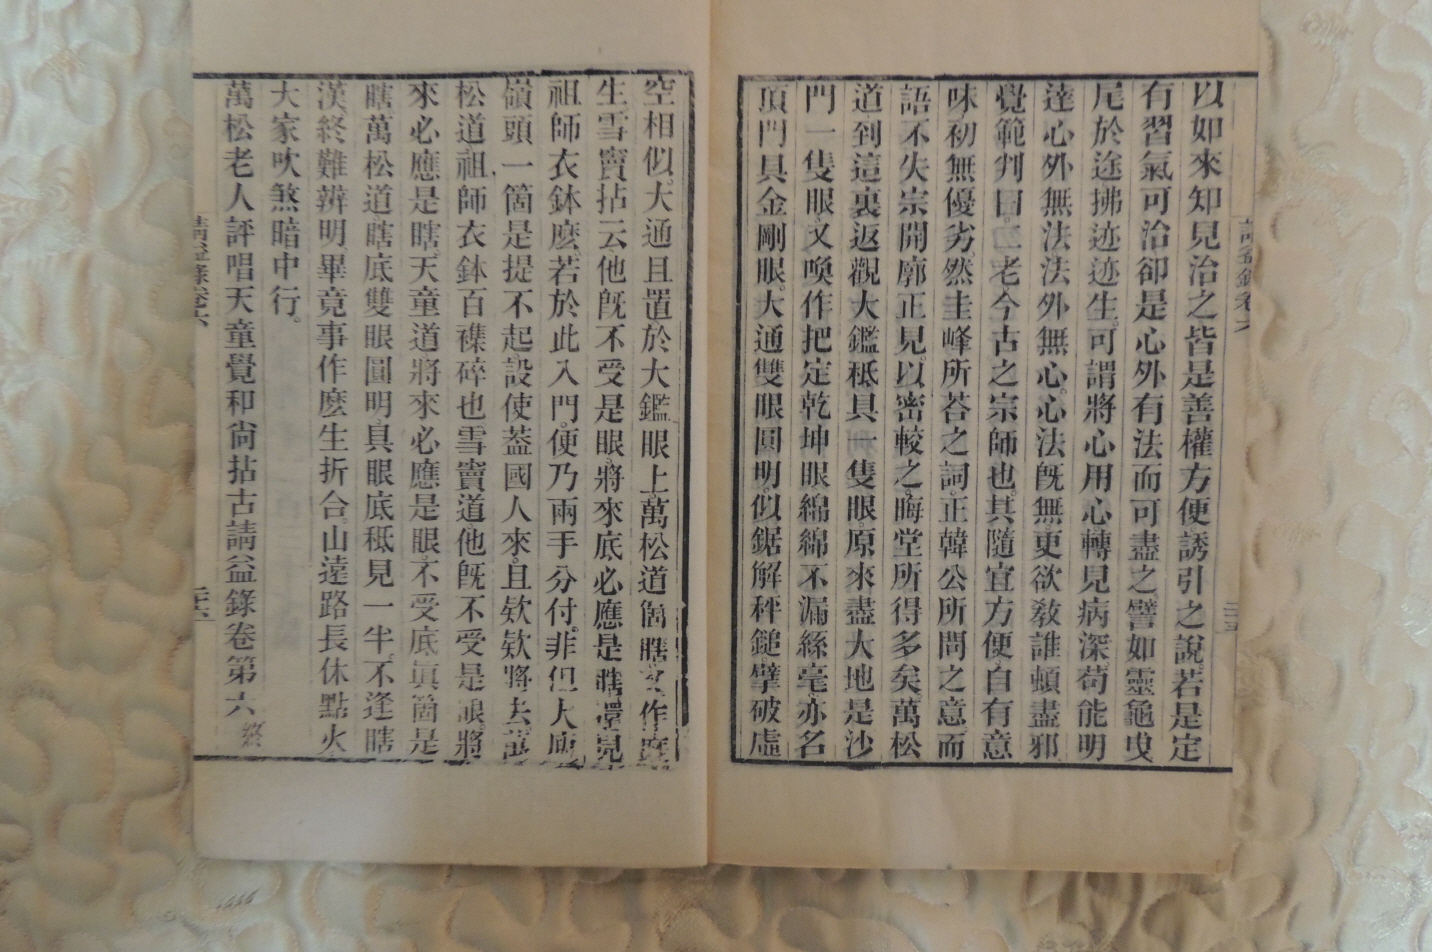 請益錄卷六
以如來知見治之皆是善權方便誘引之說若是定
有習氣可治卻是心外有法而可盡之譬如靈龜曳
尾於途拂迹迹生可謂將心用心轉見病深苟能明
達心外無法法外無心心法旣無更欲敎誰頓盡邪
覺範判曰二老今古之宗師也其隨宜方便自有意
味初無優劣然圭峰所荅之詞正韓公所問之意而
語不失宗開廓正見以密較之晦堂所得多矣萬松
道到這裏返觀大鑑秪具一隻眼原來盡大地是沙
門一隻眼又喚作把定乾坤眼綿綿不漏絲毫亦名
頂門具金剛眼大通雙眼圓明似鋸解秤鎚擘破虛
空相似大通且置於大鑑眼上萬松道箇瞎又作麼
生雪竇拈云他旣不受是眼將來底必應是瞎還見
祖師衣鉢麽若於此入門便乃兩手分付非但大庾
嶺頭一箇是提不起設使葢國人來且欵欵將去萬
松道祖師衣鉢百襍碎也雪竇道他旣不受是眼將
來必應是瞎天童道將來必應是眼不受底眞箇是
瞎萬松道瞎底雙眼圓明具眼底秪見一半不逢瞎
漢終難辨明畢竟事作麽生折合山遠路長休點火
大家吹煞暗中行
萬松老人評唱天童覺和尙拈古請益錄卷第六 終
請益錄卷六